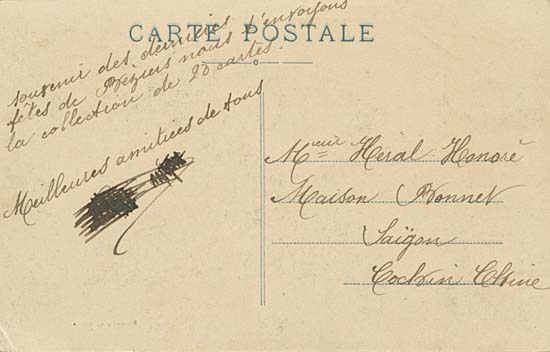 CARTE POSTALE
souvenir des dernières
fêtes de Béziers nous t'envoyons
la collection de 20 cartes.
Meilleures amitiées de tous
Mr Héral Honoré
Maison Bonnet
Saïgon
Cochin Chine